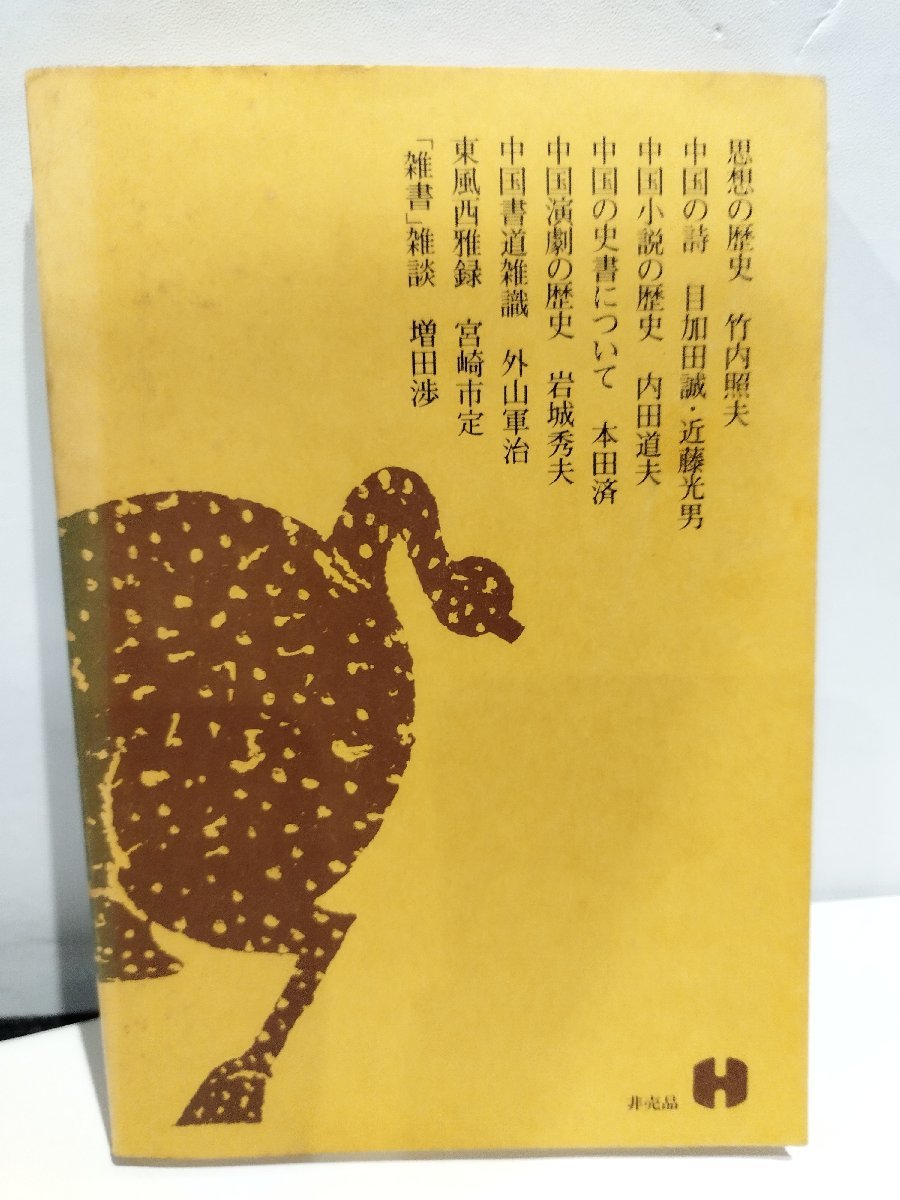 思想の歴史　竹内照夫
中国の詩　目加田誠・近藤光男
中国小説の歴史　内田道夫
中国の史書について　本田済
中国演劇の歴史　岩城秀夫
中国書道雑識　外山軍治
東風西雅録　宮崎市定
「雑書」雑談　増田渉
非売品